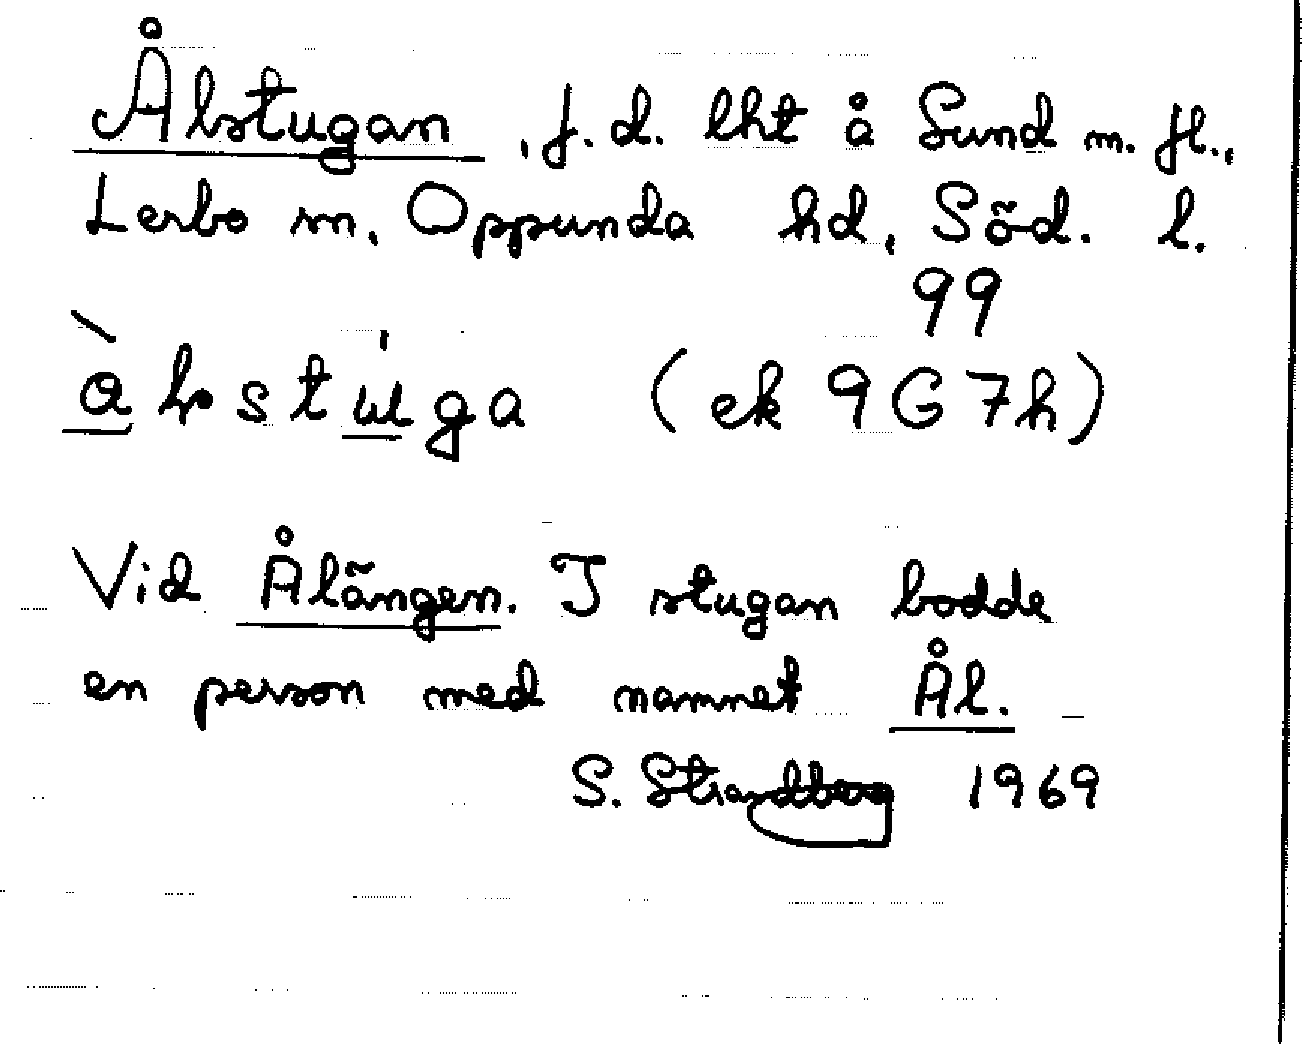 Ålstugan, f.d. lht å Sund m. fl.,
Lerbo sn, Oppunda hd, Söd. l.
99
àlstúga (ek 9G7h)
Vid Ålängen. I stugan bodde
en person med namnet Ål.
S. Strandberg 1969